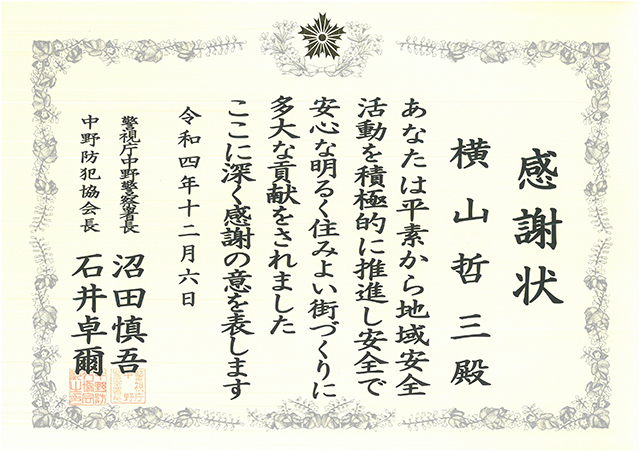 感謝状
横山哲三殿
あなたは平素から地域安全
活動を積極的に推進し安全で
安心な明るく住みよい街づくりに
多大な貢献をされました
ここに深く感謝の意を表します
令和四年十二月六日
警視庁中野警察署長 沼田慎吾
中野防犯協会長 石井卓爾